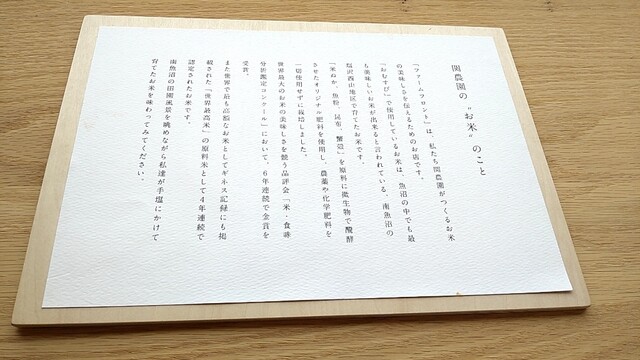 関農園の〝お米〟のこと
「ファームフロント」は、私たち関農園がつくるお米
の美味しさを伝えるためのお店です。
「おむすび」で使用しているお米は、魚沼の中でも最
も美味しいお米が出来ると言われている、南魚沼の
塩沢西山地区で育てたお米です。
「米ぬか、魚粉、昆布、蟹殻」を原料に微生物で醗酵
させたオリジナル肥料を使用し、農薬や化学肥料を
一切使用せずに栽培しました。
世界最大のお米の美味しさを競う品評会「米・食味
分析鑑定コンクール」において、6年連続で金賞を
受賞。
また世界で最も高額なお米としてギネス記録にも掲
載された「世界最高米」の原料米として4年連続で
認定されたお米です。
南魚沼の田園風景を眺めながら私達が手塩にかけて
育てたお米を味わってみてください。